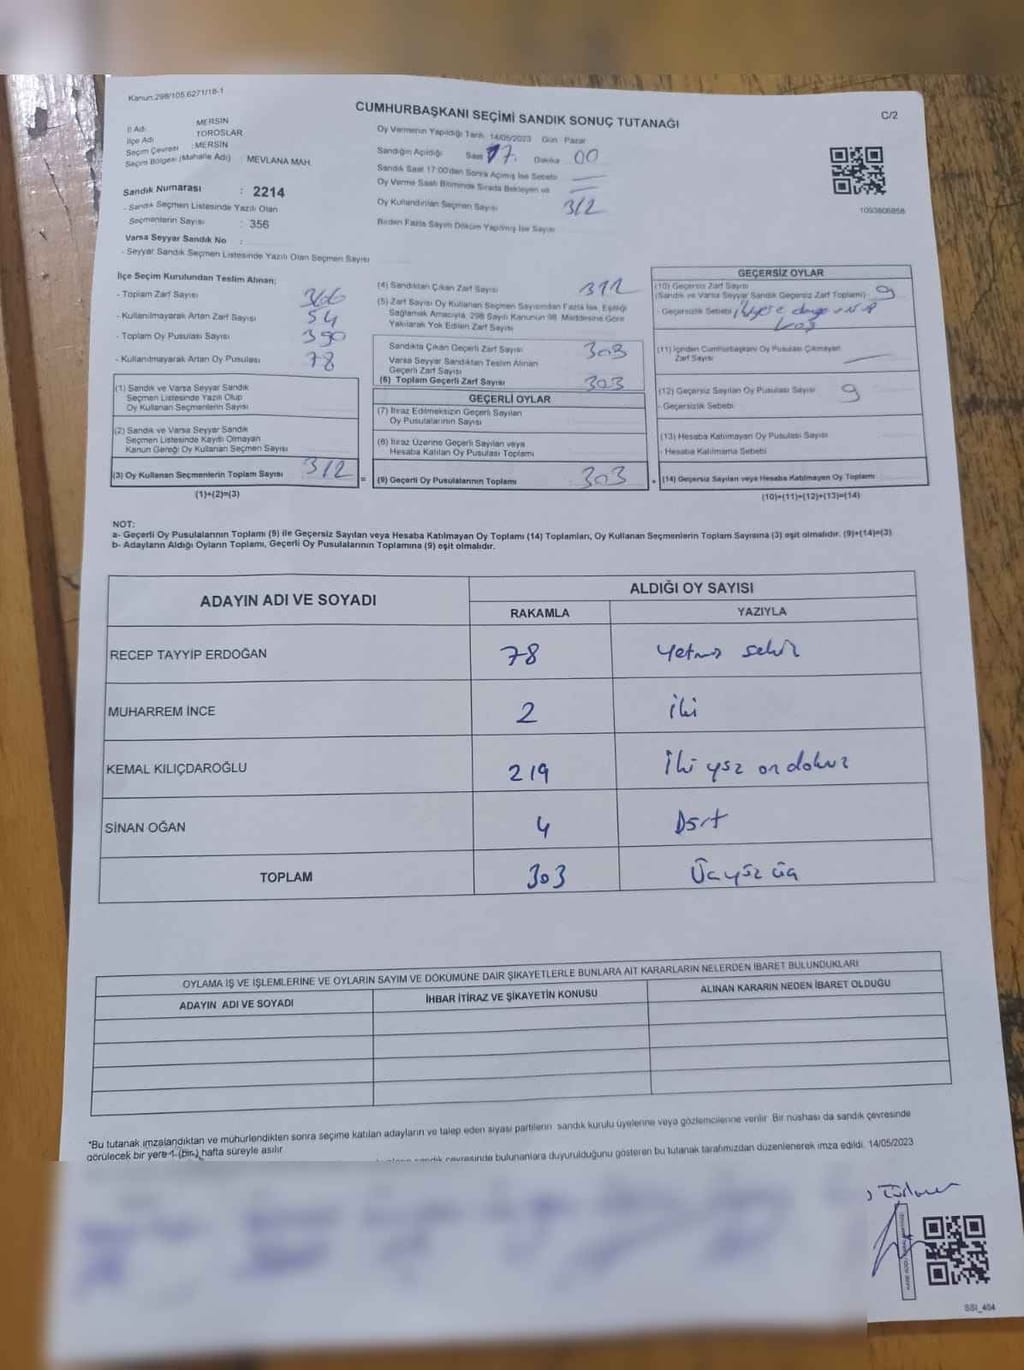 Kanun:298/105.6271/18-1
CUMHURBAŞKANI SEÇİMİ SANDIK SONUÇ TUTANAĞI
C/2
İl Adı : MERSİN
İlçe Adı : TOROSLAR
Seçim Çevresi : MERSİN
Seçim Bölgesi (Mahalle Adı) : MEVLANA MAH.
Sandık Numarası : 2214
- Sandık Seçmen Listesinde Yazılı Olan
Seçmenlerin Sayısı : 356
Varsa Seyyar Sandık No :
- Seyyar Sandık Seçmen Listesinde Yazılı Olan Seçmen Sayısı
Oy Vermenin Yapıldığı Tarih 14/05/2023 Gün Pazar
Sandığın Açıldığı Saat 17. Dakika 00
Sandık Saat 17:00'den Sonra Açılmış İse Sebebi
Oy Verme Saati Bitiminde Sırada Bekleyen ve
Oy Kullandırılan Seçmen Sayısı 312
Birden Fazla Sayım Döküm Yapılmış İse Sayısı
1093806858
İlçe Seçim Kurulundan Teslim Alınan:
- Toplam Zarf Sayısı 366
- Kullanılmayarak Artan Zarf Sayısı 54
- Toplam Oy Pusulası Sayısı 390
- Kullanılmayarak Artan Oy Pusulası 78
(1) Sandık ve Varsa Seyyar Sandık
Seçmen Listesinde Yazılı Olup
Oy Kullanan Seçmenlerin Sayısı
(2) Sandık ve Varsa Seyyar Sandık
Seçmen Listesinde Kayıtlı Olmayan
Kanun Gereği Oy Kullanan Seçmen Sayısı
(3) Oy Kullanan Seçmenlerin Toplam Sayısı 312 =
(1)+(2)=(3)
(4) Sandıktan Çıkan Zarf Sayısı 312
(5) Zarf Sayısı Oy Kullanan Seçmen Sayısından Fazla İse, Eşitliği
Sağlamak Amacıyla, 298 Sayılı Kanunun 98. Maddesine Göre
Yakılarak Yok Edilen Zarf Sayısı
Sandıkta Çıkan Geçerli Zarf Sayısı 303
Varsa Seyyar Sandıktan Teslim Alınan
Geçerli Zarf Sayısı
(6) Toplam Geçerli Zarf Sayısı 303
GEÇERLİ OYLAR
(7) İtiraz Edilmeksizin Geçerli Sayılan
Oy Pusulalarının Sayısı
(8) İtiraz Üzerine Geçerli Sayılan veya
Hesaba Katılan Oy Pusulası Toplamı
(9) Geçerli Oy Pusulalarının Toplamı 303 +
GEÇERSİZ OYLAR
(10) Geçersiz Zarf Sayısı
(Sandık ve Varsa Seyyar Sandık Geçersiz Zarf Toplamı) 9
- Geçersizlik Sebebi
(11) İçinden Cumhurbaşkanı Oy Pusulası Çıkmayan
Zarf Sayısı
(12) Geçersiz Sayılan Oy Pusulası Sayısı 9
- Geçersizlik Sebebi
(13) Hesaba Katılmayan Oy Pusulası Sayısı
- Hesaba Katılmama Sebebi
(14) Geçersiz Sayılan veya Hesaba Katılmayan Oy Toplamı
(10)+(11)+(12)+(13)=(14)
NOT:
a- Geçerli Oy Pusulalarının Toplamı (9) ile Geçersiz Sayılan veya Hesaba Katılmayan Oy Toplamı (14) Toplamları, Oy Kullanan Seçmenlerin Toplam Sayısına (3) eşit olmalıdır. (9)+(14)=(3)
b- Adayların Aldığı Oyların Toplamı, Geçerli Oy Pusulalarının Toplamına (9) eşit olmalıdır.
ADAYIN ADI VE SOYADI
ALDIĞI OY SAYISI
RAKAMLA YAZIYLA
RECEP TAYYİP ERDOĞAN 78 yetmiş sekiz
MUHARREM İNCE 2 iki
KEMAL KILIÇDAROĞLU 219 İki yüz on dokuz
SİNAN OĞAN 4 Dört
TOPLAM 303 Üç yüz üç
OYLAMA İŞ VE İŞLEMLERİNE VE OYLARIN SAYIM VE DÖKÜMÜNE DAİR ŞİKAYETLERLE BUNLARA AİT KARARLARIN NELERDEN İBARET BULUNDUKLARI
ADAYIN ADI VE SOYADI İHBAR İTİRAZ VE ŞİKAYETİN KONUSU ALINAN KARARIN NEDEN İBARET OLDUĞU
*Bu tutanak imzalandıktan ve mühürlendikten sonra seçime katılan adayların ve talep eden siyasi partilerin sandık kurulu üyelerine veya gözlemcilerine verilir. Bir nüshası da sandık çevresinde
görülecek bir yere 1 (bir) hafta süreyle asılır.
sandık çevresinde bulunanlara duyurulduğunu gösteren bu tutanak tarafımızdan düzenlenerek imza edildi. 14/05/2023
SSI_404